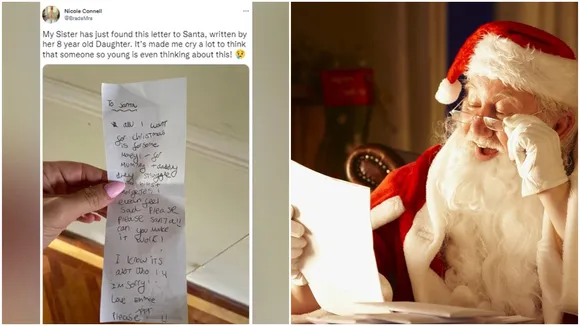 Nicole Connell
@BradsMrs
My Sister has just found this letter to Santa, written by
her 8 year old Daughter. It's made me cry a lot to think
that someone so young is even thinking about this! 😢
To Santa
all I want
for christmas
is for some
Money for
Mummy + daddy
they struggle
sad Please
Please Santa!!
can you make
it
I know its
a lot
I'm sorry!
Love
Please !!